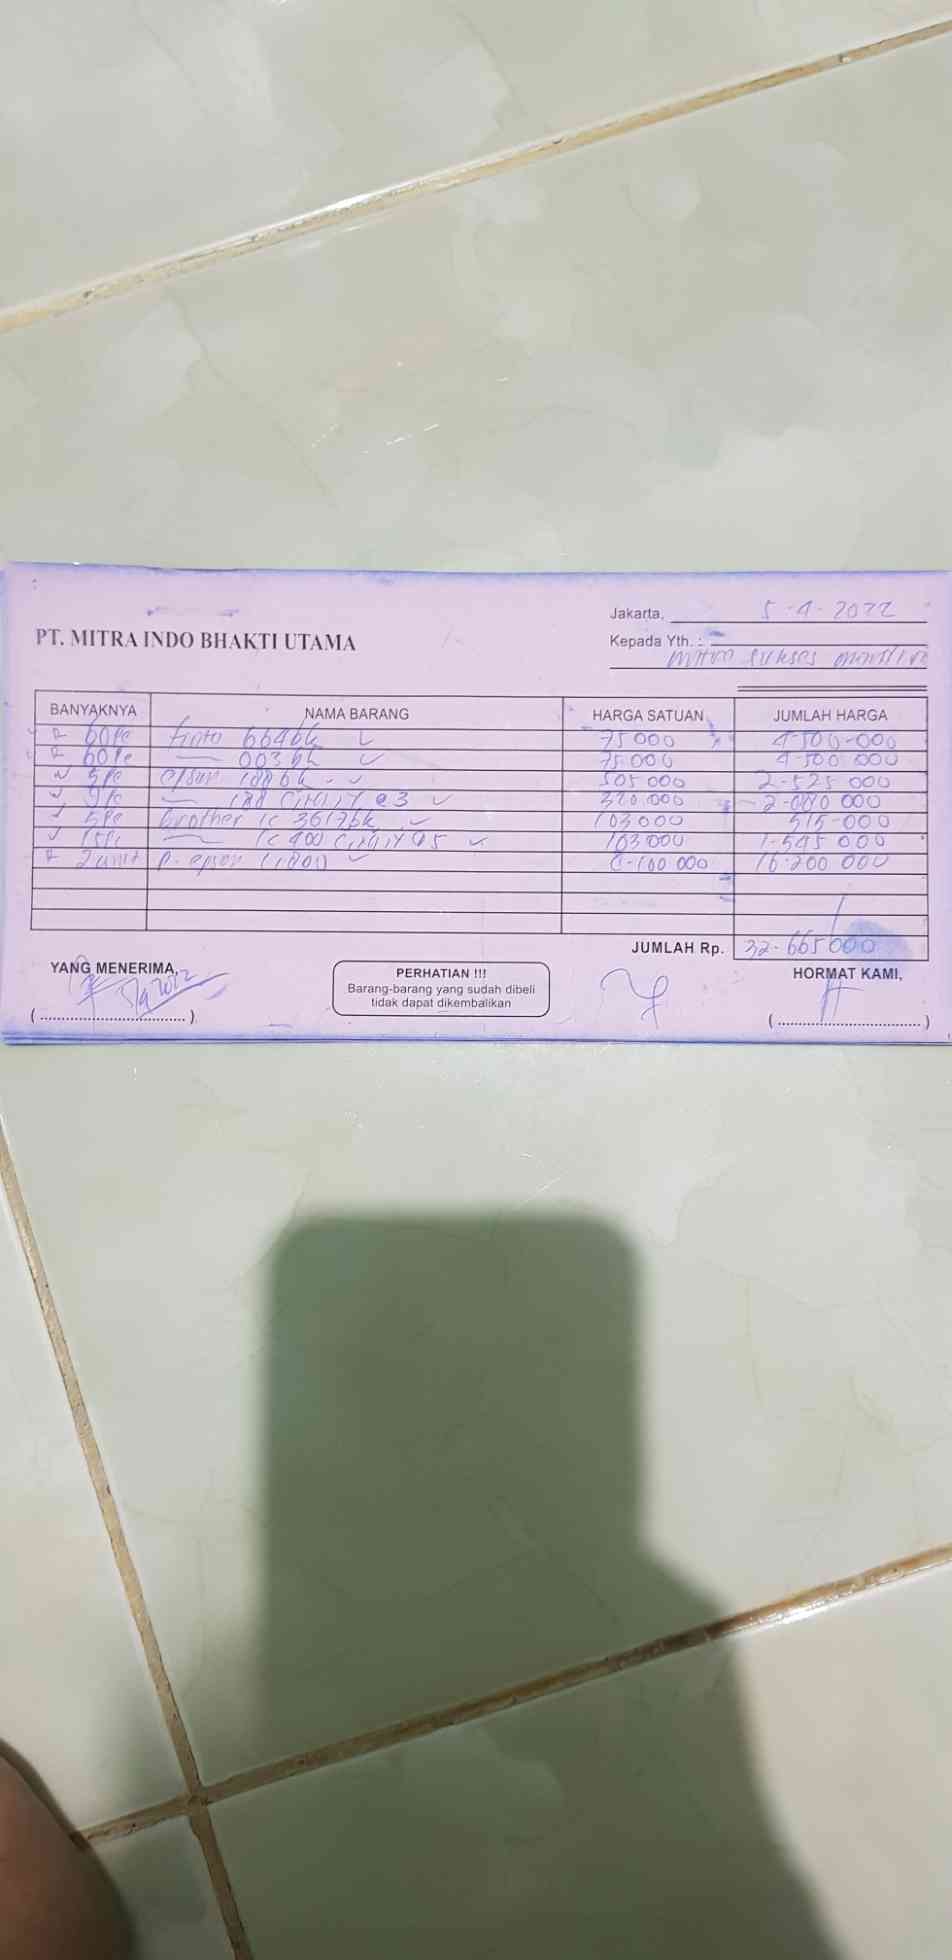 Jakarta, 5-4-2022
PT. MITRA INDO BHAKTI UTAMA
Kepada Yth. :
Mitra Sukses
BANYAKNYA NAMA BARANG HARGA SATUAN JUMLAH HARGA
60pc tinta 664bk 75000 4-500-000
60pc 003 bk 75.000 4-500 000
5pc 505 000 2-525 000
e3 320.000 2-080 000
5pc brother lc 3617bk 103000 515-000
15pc lc 400 @5 103000 1-545 000
2unit p. epson 8-100 000 16-200 000
JUMLAH Rp. 32-665000
YANG MENERIMA,
5/4 2022
PERHATIAN !!!
Barang-barang yang sudah dibeli
tidak dapat dikembalikan
HORMAT KAMI,